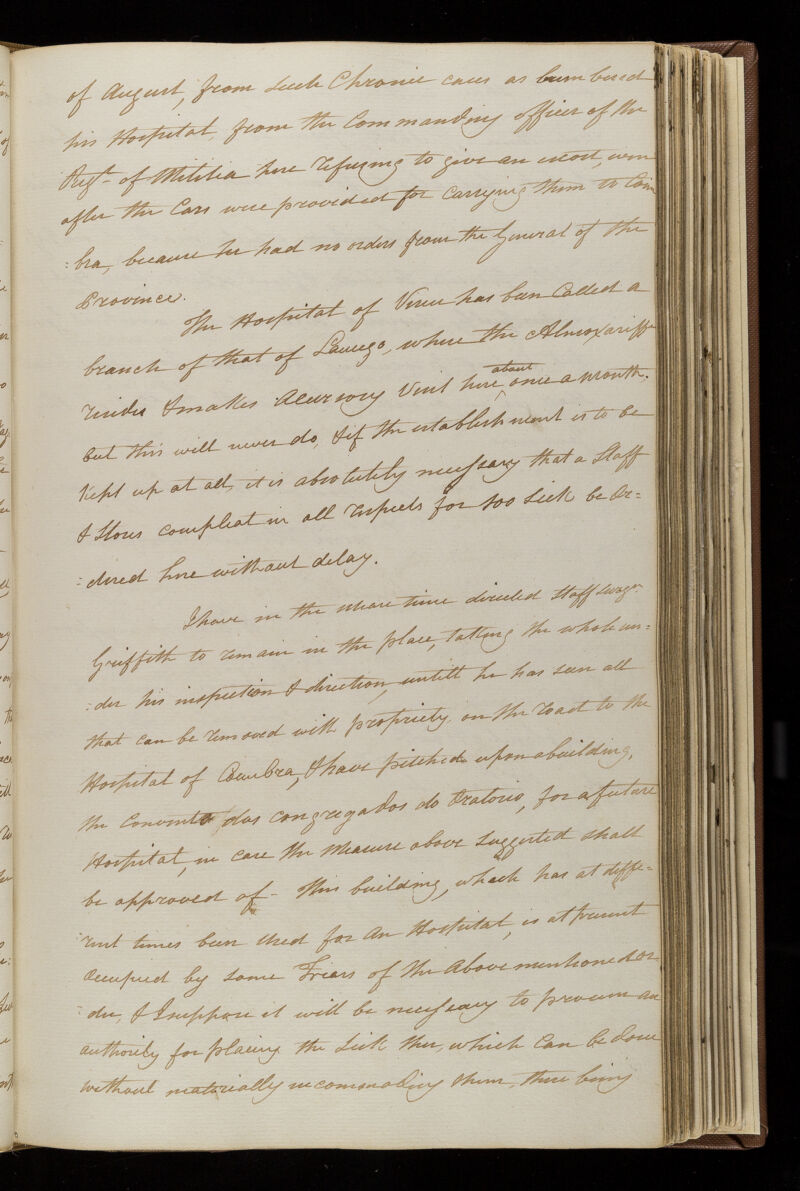 of August, from such Chronic cases as bum bered
his Hospital, from the Commanding officer of the
Regt. of Militia here refusing to give an escort, even
after the Cars were provided for carrying them to Coim
:bra, because he had no orders from the General of the
Province.
The Hospital of Viseu has been Called a
branch of that of Lamego, where the Almoxariffe
resides & makes a cursory visit here, about once a month.
but this will never do, & if the establishment is to be
kept up at all, it is absolutely necessary that a Staff
& Stores compleat in all respects for 100 Sick be Or=
:dered here without delay.
I have in the mean time directed Staff Surgn.
Griffith to remain in the place, taking the whole un=
:der his inspection & direction, untill he has seen all
that can be removed with propriety on the road to the
Hospital of Coimbra, I have pitched upon a building,
the Convento dos congregados do Oratorio, for a future
Hospital, in case the Measure above suggested shall
be approved of - This building, which has at diffe=
:rent times been Used for An Hospital, is at present
occupied by some Friars of the Above mentioned or
:der, & I suppose it will be necessary to procure an
authority for placing the Sick there, which Can be done
without materially incommoding them, there being